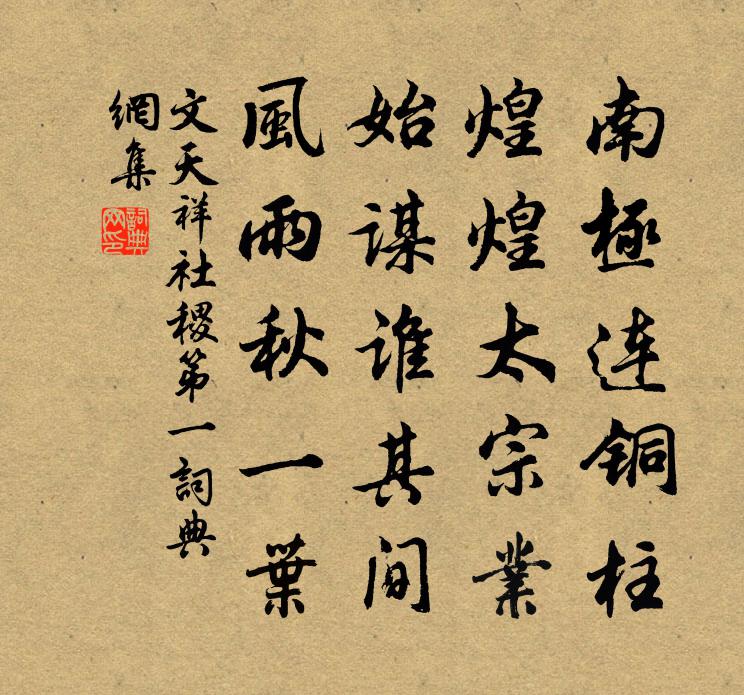 南極连铜柱
煌煌太宗業
始谋谁其间
風雨秋一葉
文天祥社稷第一詞典
網集
詞典
网印